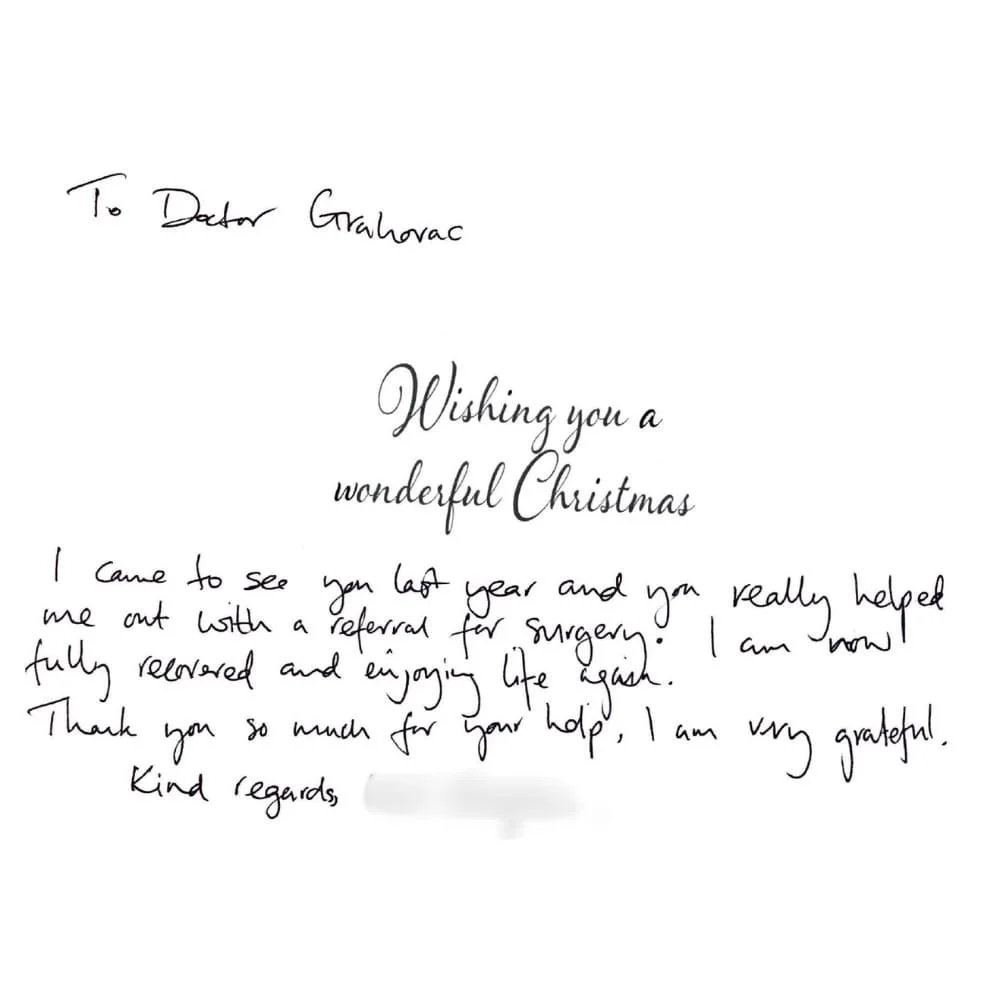 To Doctor Grahovac
Wishing you a
wonderful Christmas
I came to see you last year and you really helped
me out with a referral for surgery. I am now
fully recovered and enjoying life again.
Thank you so much for your help, I am very grateful.
Kind regards,